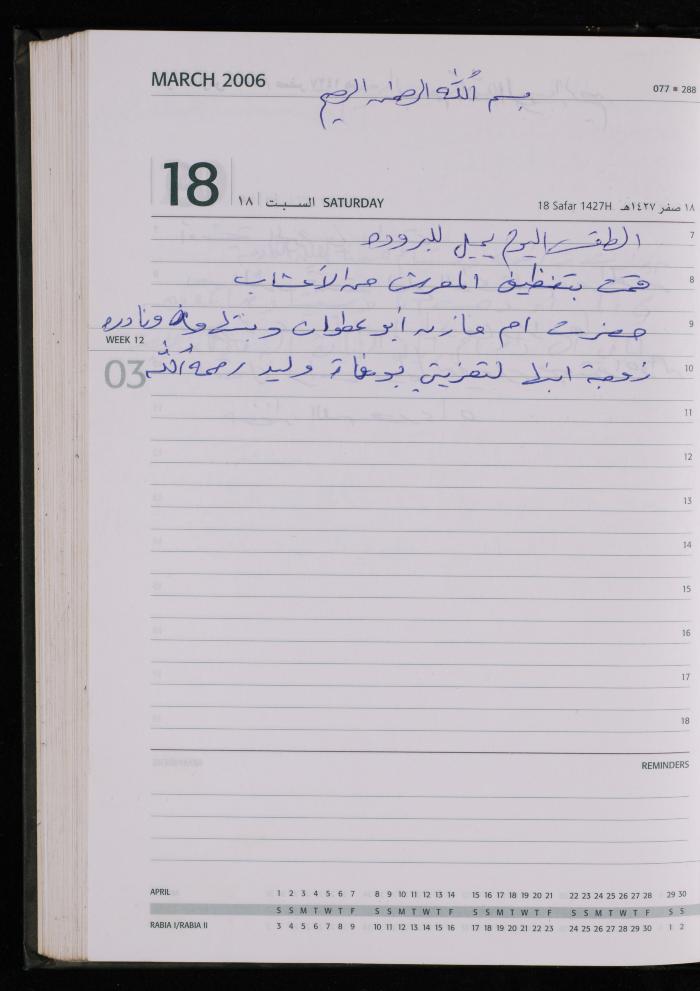 MARCH 2006
بسم الله الرحمن الرحيم
077 ■ 288
18 ١٨ السبت SATURDAY
18 Safar 1427H ١٨ صفر ١٤٢٧هـ
7
الطقس اليوم يميل للبروده
8
قمت بتنظيف المعرش من الأعشاب
9
حضرت ام مازن أبو عطوان و ونادره
WEEK 12
10
زوجة ابنها لتعزيتي بوفاة وليد رحمه الله
03
11
12
13
14
15
16
17
18
REMINDERS
APRIL 1 2 3 4 5 6 7 8 9 10 11 12 13 14 15 16 17 18 19 20 21 22 23 24 25 26 27 28 29 30
S S M T W T F S S M T W T F S S M T W T F S S M T W T F S S
RABIA I/RABIA II 3 4 5 6 7 8 9 10 11 12 13 14 15 16 17 18 19 20 21 22 23 24 25 26 27 28 29 30 1 2